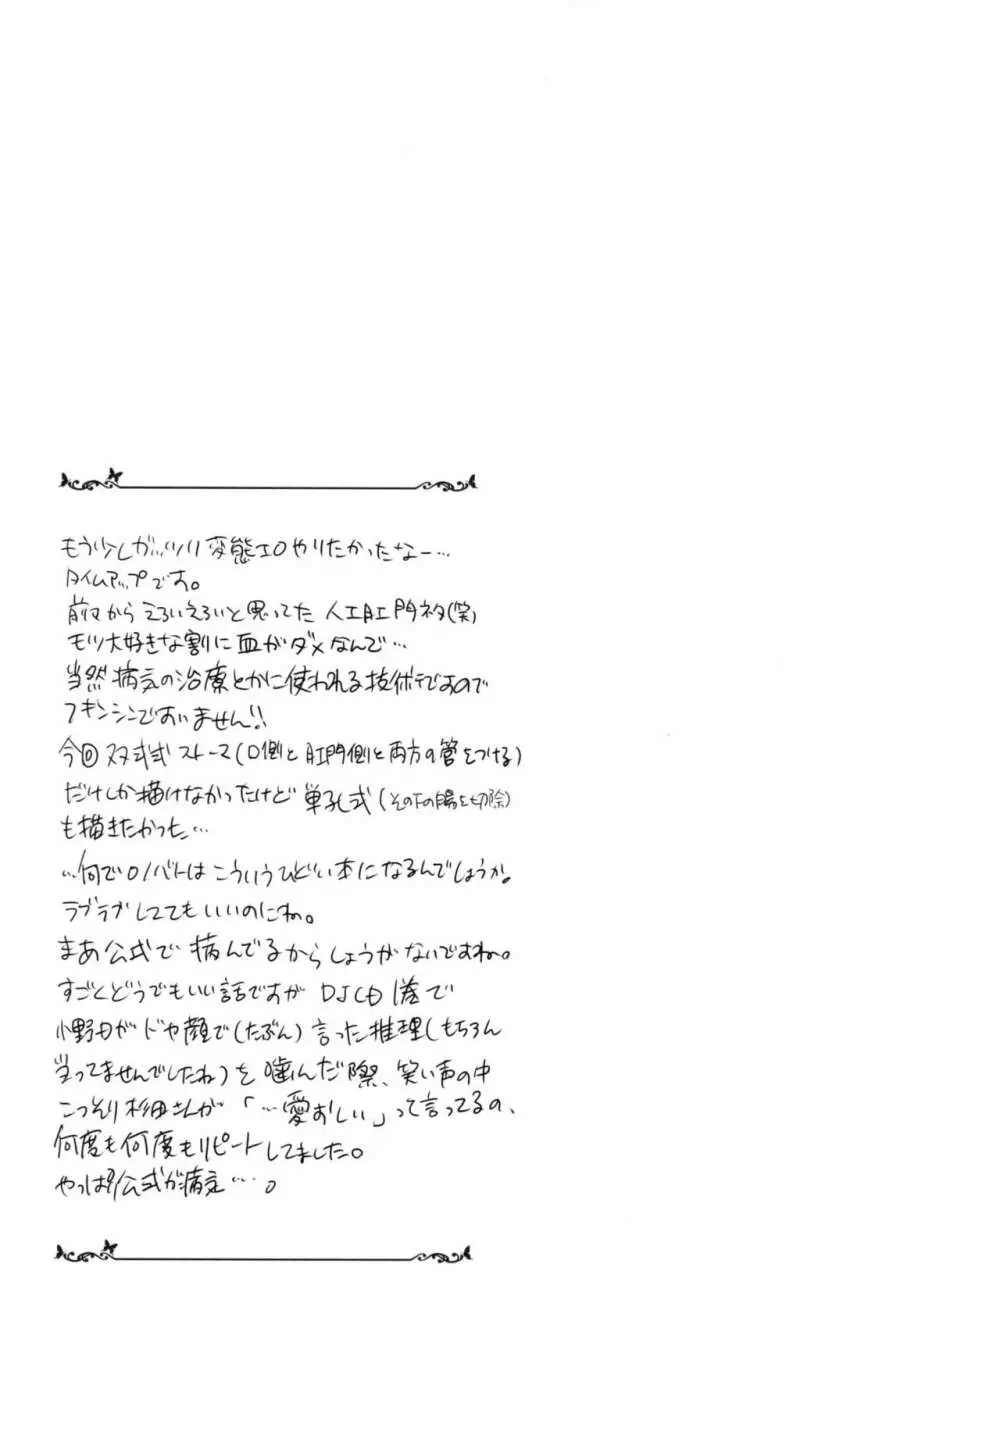 もう少しガッツリ変態エロやりたかったなー…
タイムアップです。
前々からえろいえろいと思ってた 人工肛門ネタ(笑)
モツ大好きな割に血がダメなんで…
当然 病気の治療とかに使われる技術ですので
フキンシンですいません!!
今回 双孔式ストーマ(口側と肛門側と両方の管をつける)
だけしか描けなかったけど 単孔式(その下の腸を切除)
も描きたかった…
…何でロノバトはこういうひどい本になるんでしょうか。
ラブラブしててもいいのにね。
まあ公式で病んでるからしょうがないですね。
すごくどうでもいい話ですが DJCD 1巻で
小野Dがドヤ顔で(たぶん)言った推理(もちろん
当ってませんでしたね)を噛んだ際、笑い声の中
こっそり杉田さんが「…愛おしい」って言ってるの、
何度も何度もリピートしてました。
やっぱり公式が病…。